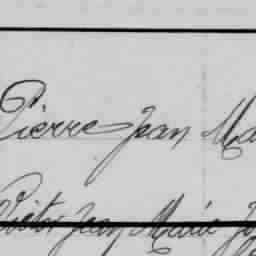 Pierre Jean Ma
Victor Jean Marie Jo